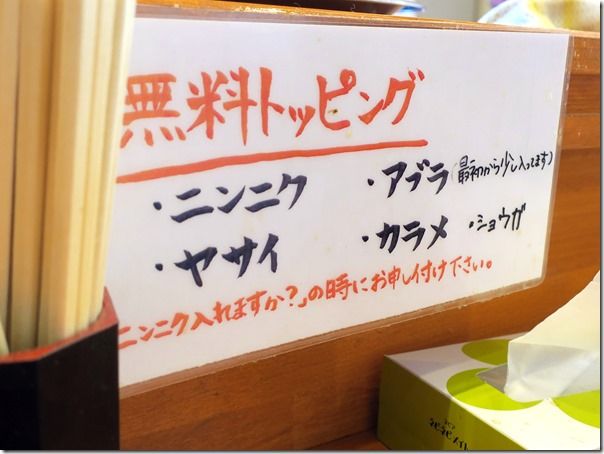 無料トッピング
・ニンニク ・アブラ(最初から少し入ってます)
・ヤサイ ・カラメ ・ショウガ
ニンニク入れますか?」の時にお申し付け下さい。